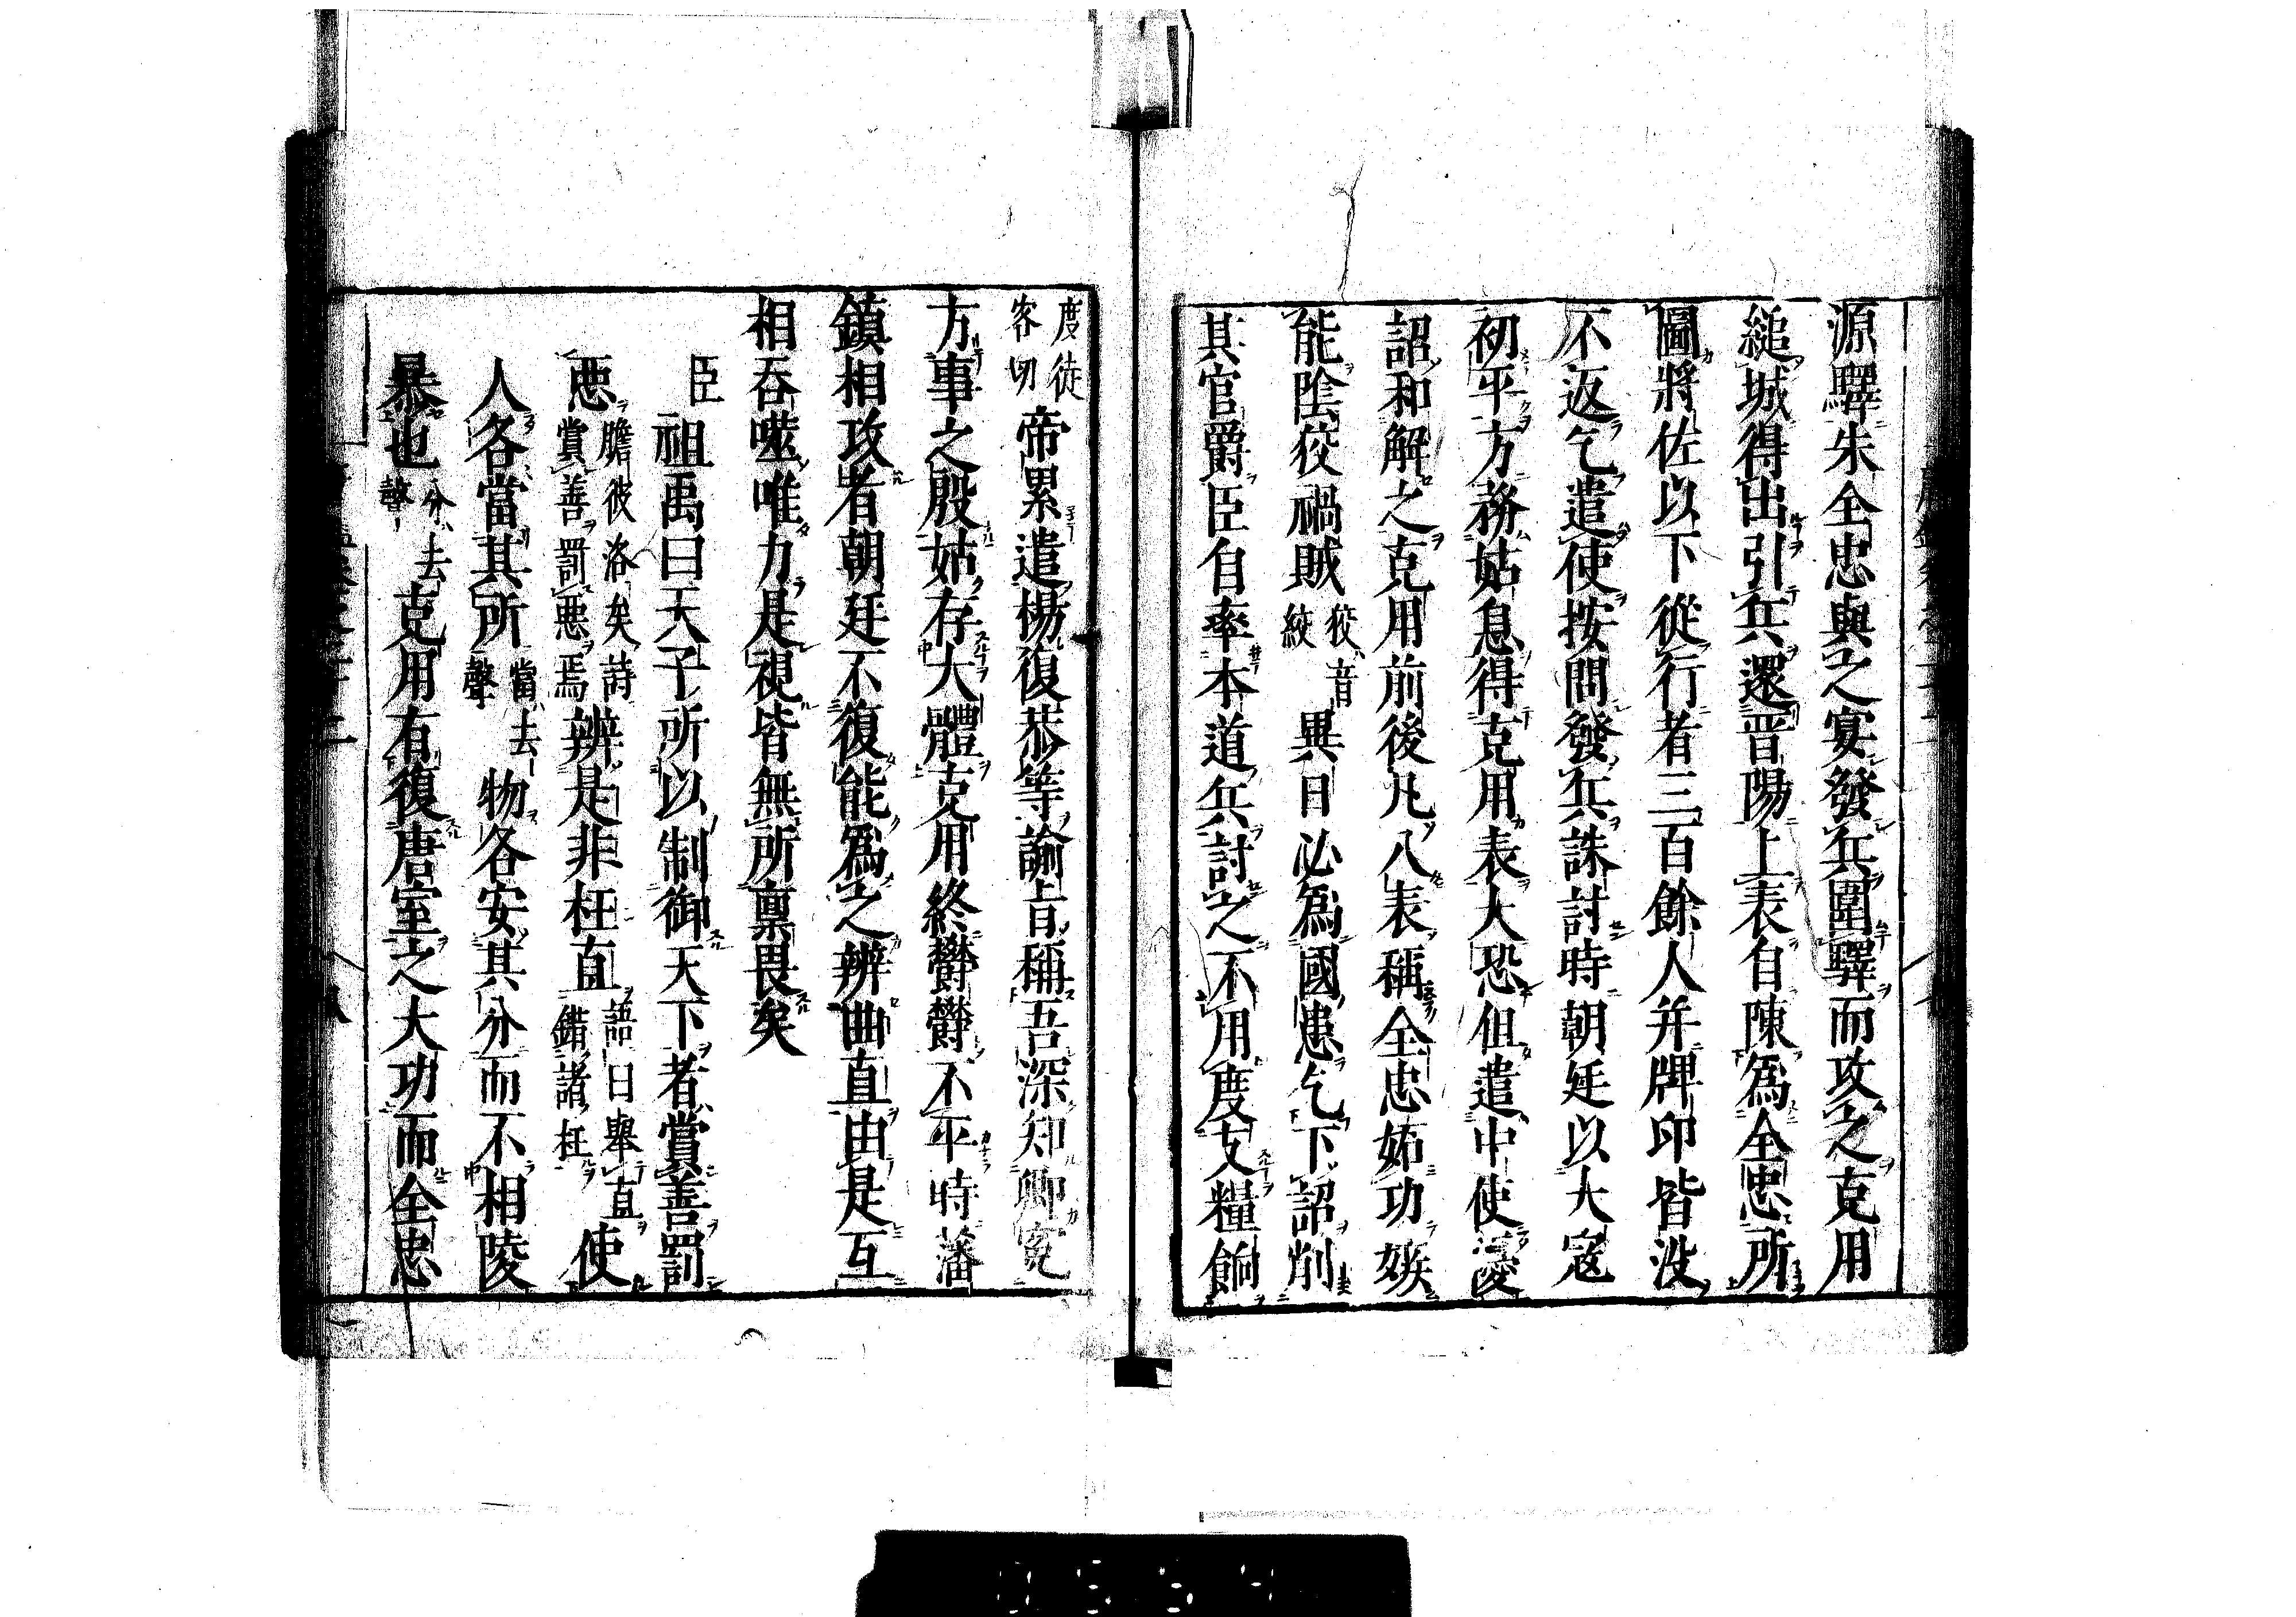 源驛朱全忠與之宴發兵圍驛而攻之克用
縋城得出引兵還晋陽上表自陳爲全忠所
圖將佐以下從行者三百餘人并牌印皆没
不返乞遣使按問發兵誅討時朝廷以大寇
初平方務姑息得克用表大恐但遣中使優
詔和解之克用前後凡八表稱全忠妬功嫉
能陰狡禍賊狡音絞異日必爲國患乞下詔削
其官爵臣自率本道兵討之不用度支糧餉
度徒客切帝累遣楊復恭等諭旨稱吾深知卿寃
方事之殷姑存大體克用終鬱鬱不平時藩
鎮相攻者朝廷不復能爲之辨曲直由是互
相吞噬唯力是視皆無所稟畏矣
臣祖禹曰天子所以制御天下者賞善罰
惡膽彼洛矣詩賞善罰惡焉辨是非枉直語曰舉直錯諸枉使
人各當其所當去聲物各安其分而不相陵
暴也分去聲克用有復唐室之大功而全忠